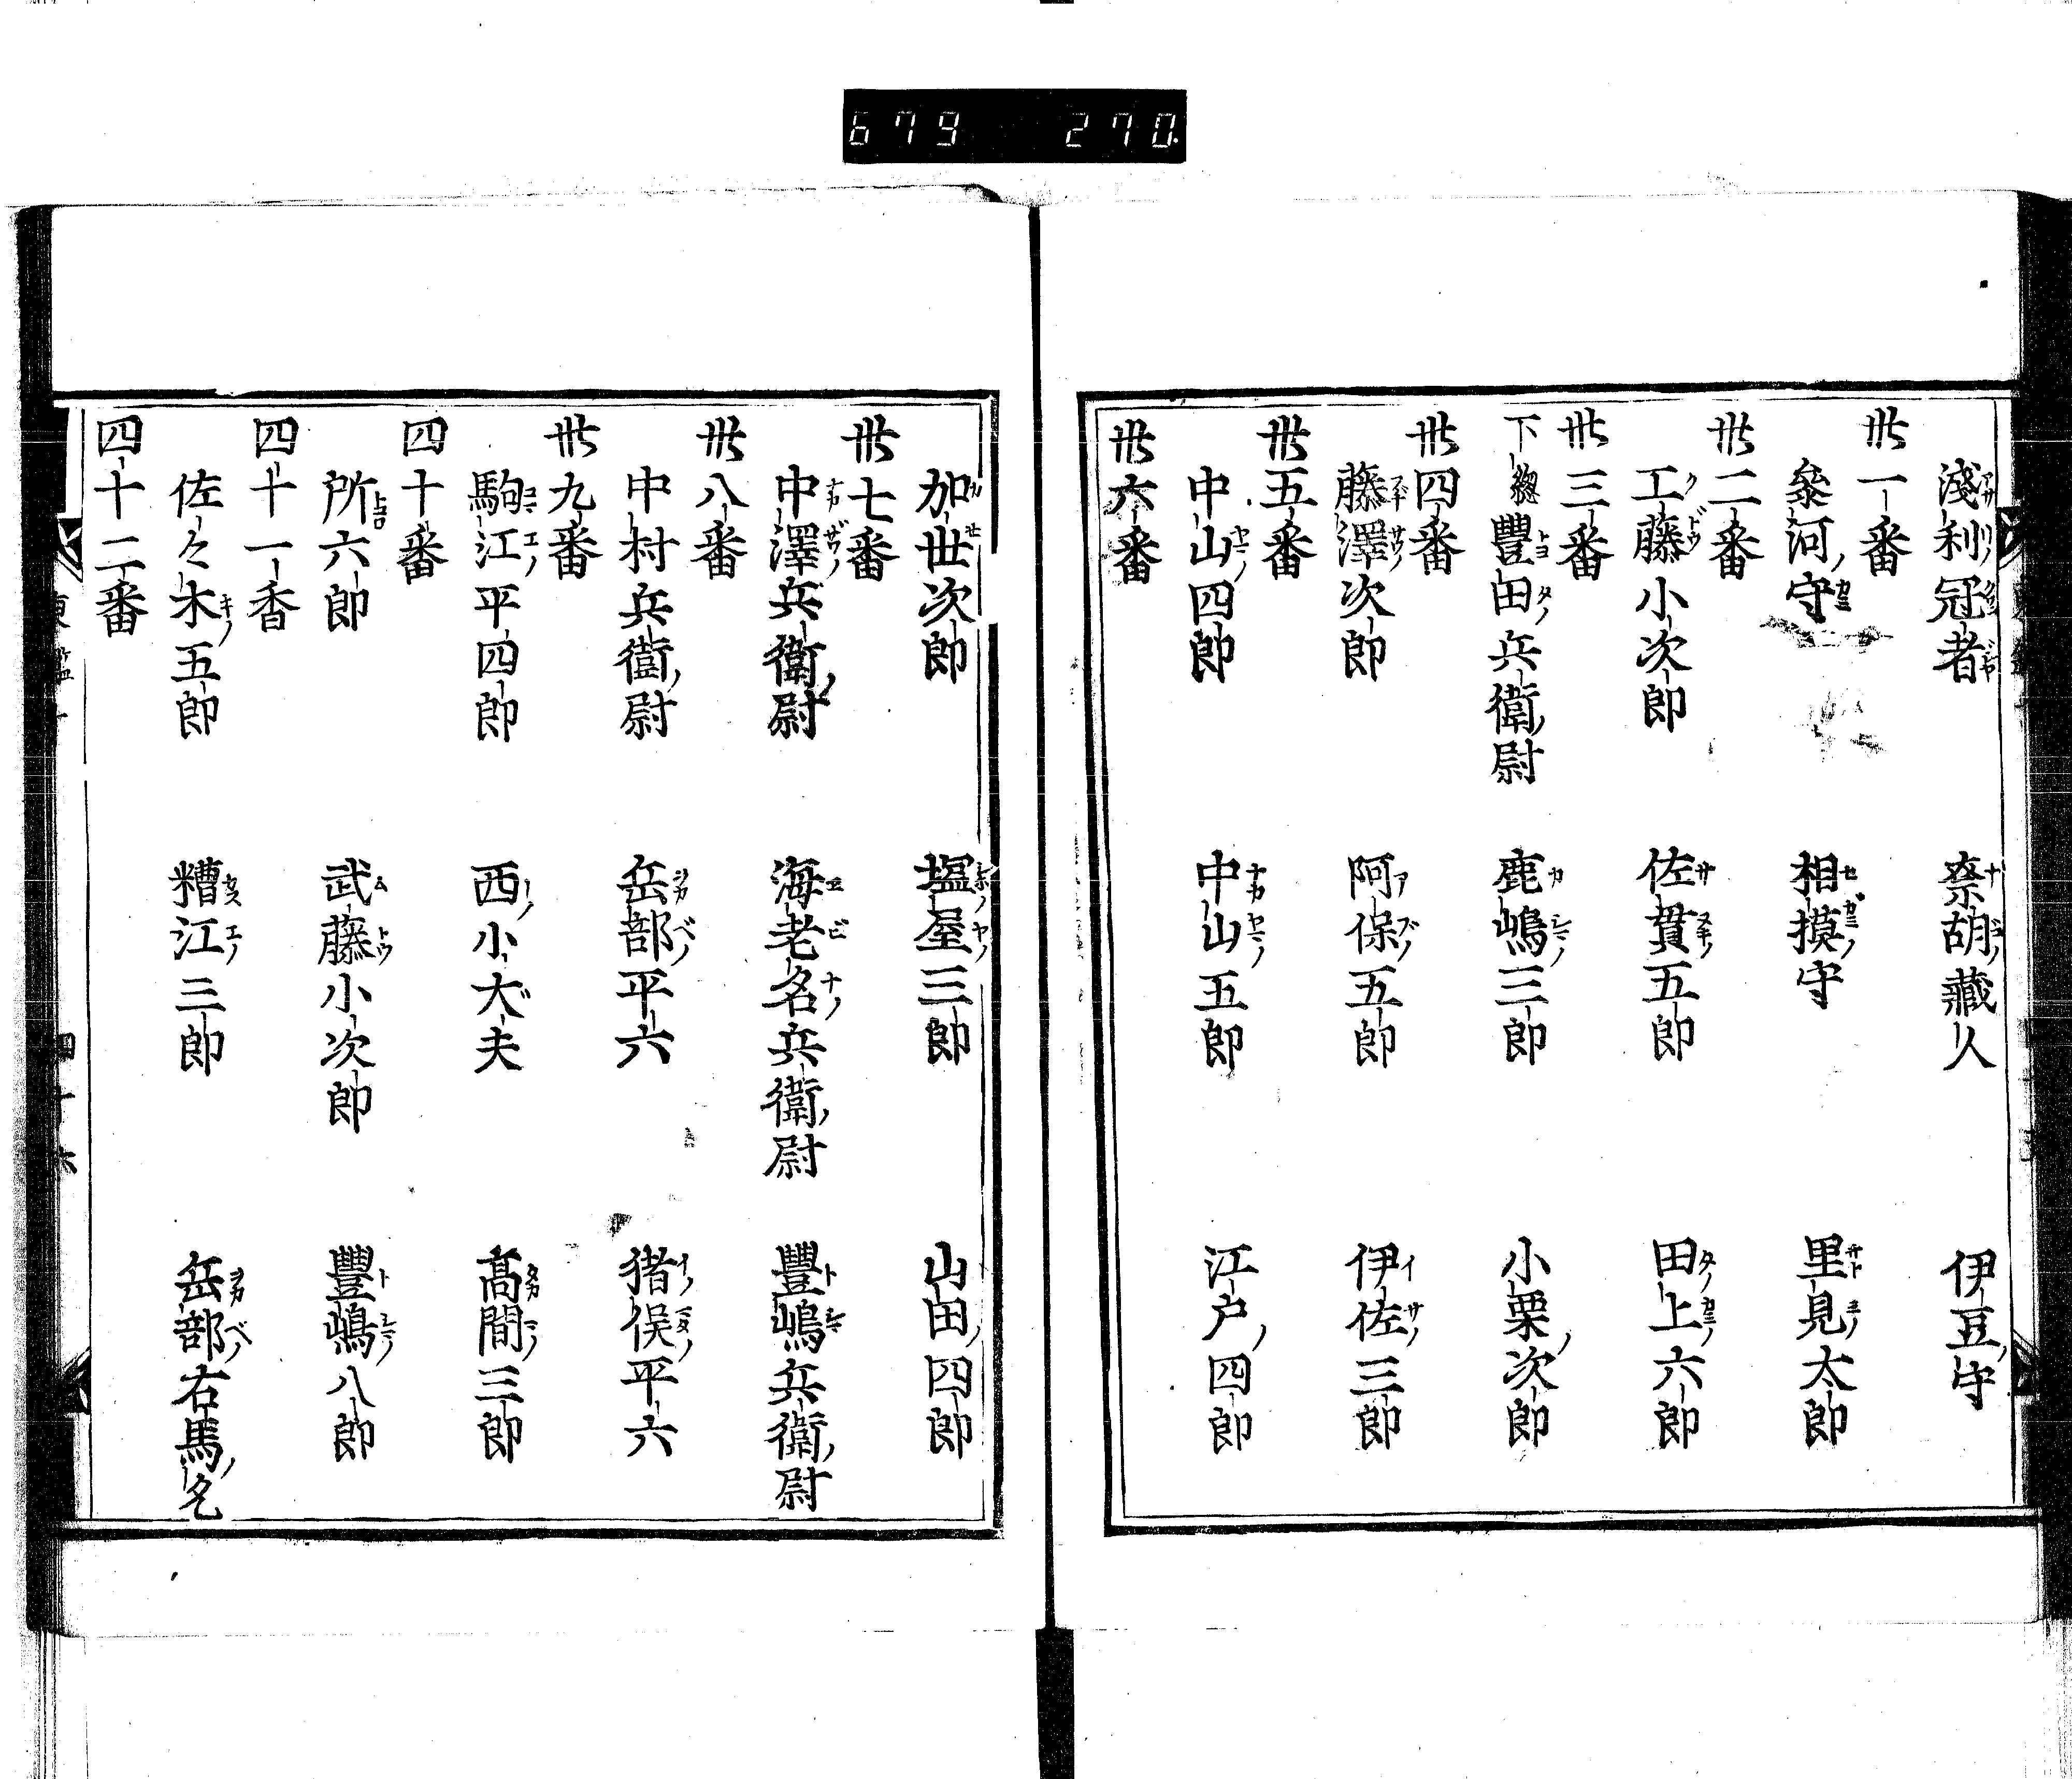 679 270
淺利冠者 奈胡藏人 伊豆守
卅一番
參河守 相摸守 里見太郎
卅二番
工藤小次郎 佐貫五郎 田上六郎
卅三番
下總豐田兵衛尉 鹿嶋三郎 小栗次郎
卅四番
藤澤次郎 阿保五郎 伊佐三郎
卅五番
中山四郎 中山五郎 江戸四郎
卅六番
加世次郎 塩屋三郎 山田四郎
卅七番
中澤兵衛尉 海老名兵衛尉 豐嶋兵衛尉
卅八番
中村兵衛尉 岳部平六 猪俣平六
卅九番
駒江平四郎 西小大夫 髙間三郎
四十番
所六郎 武藤小次郎 豐嶋八郎
四十一番
佐々木五郎 糟江三郎 岳部右馬允
四十二番